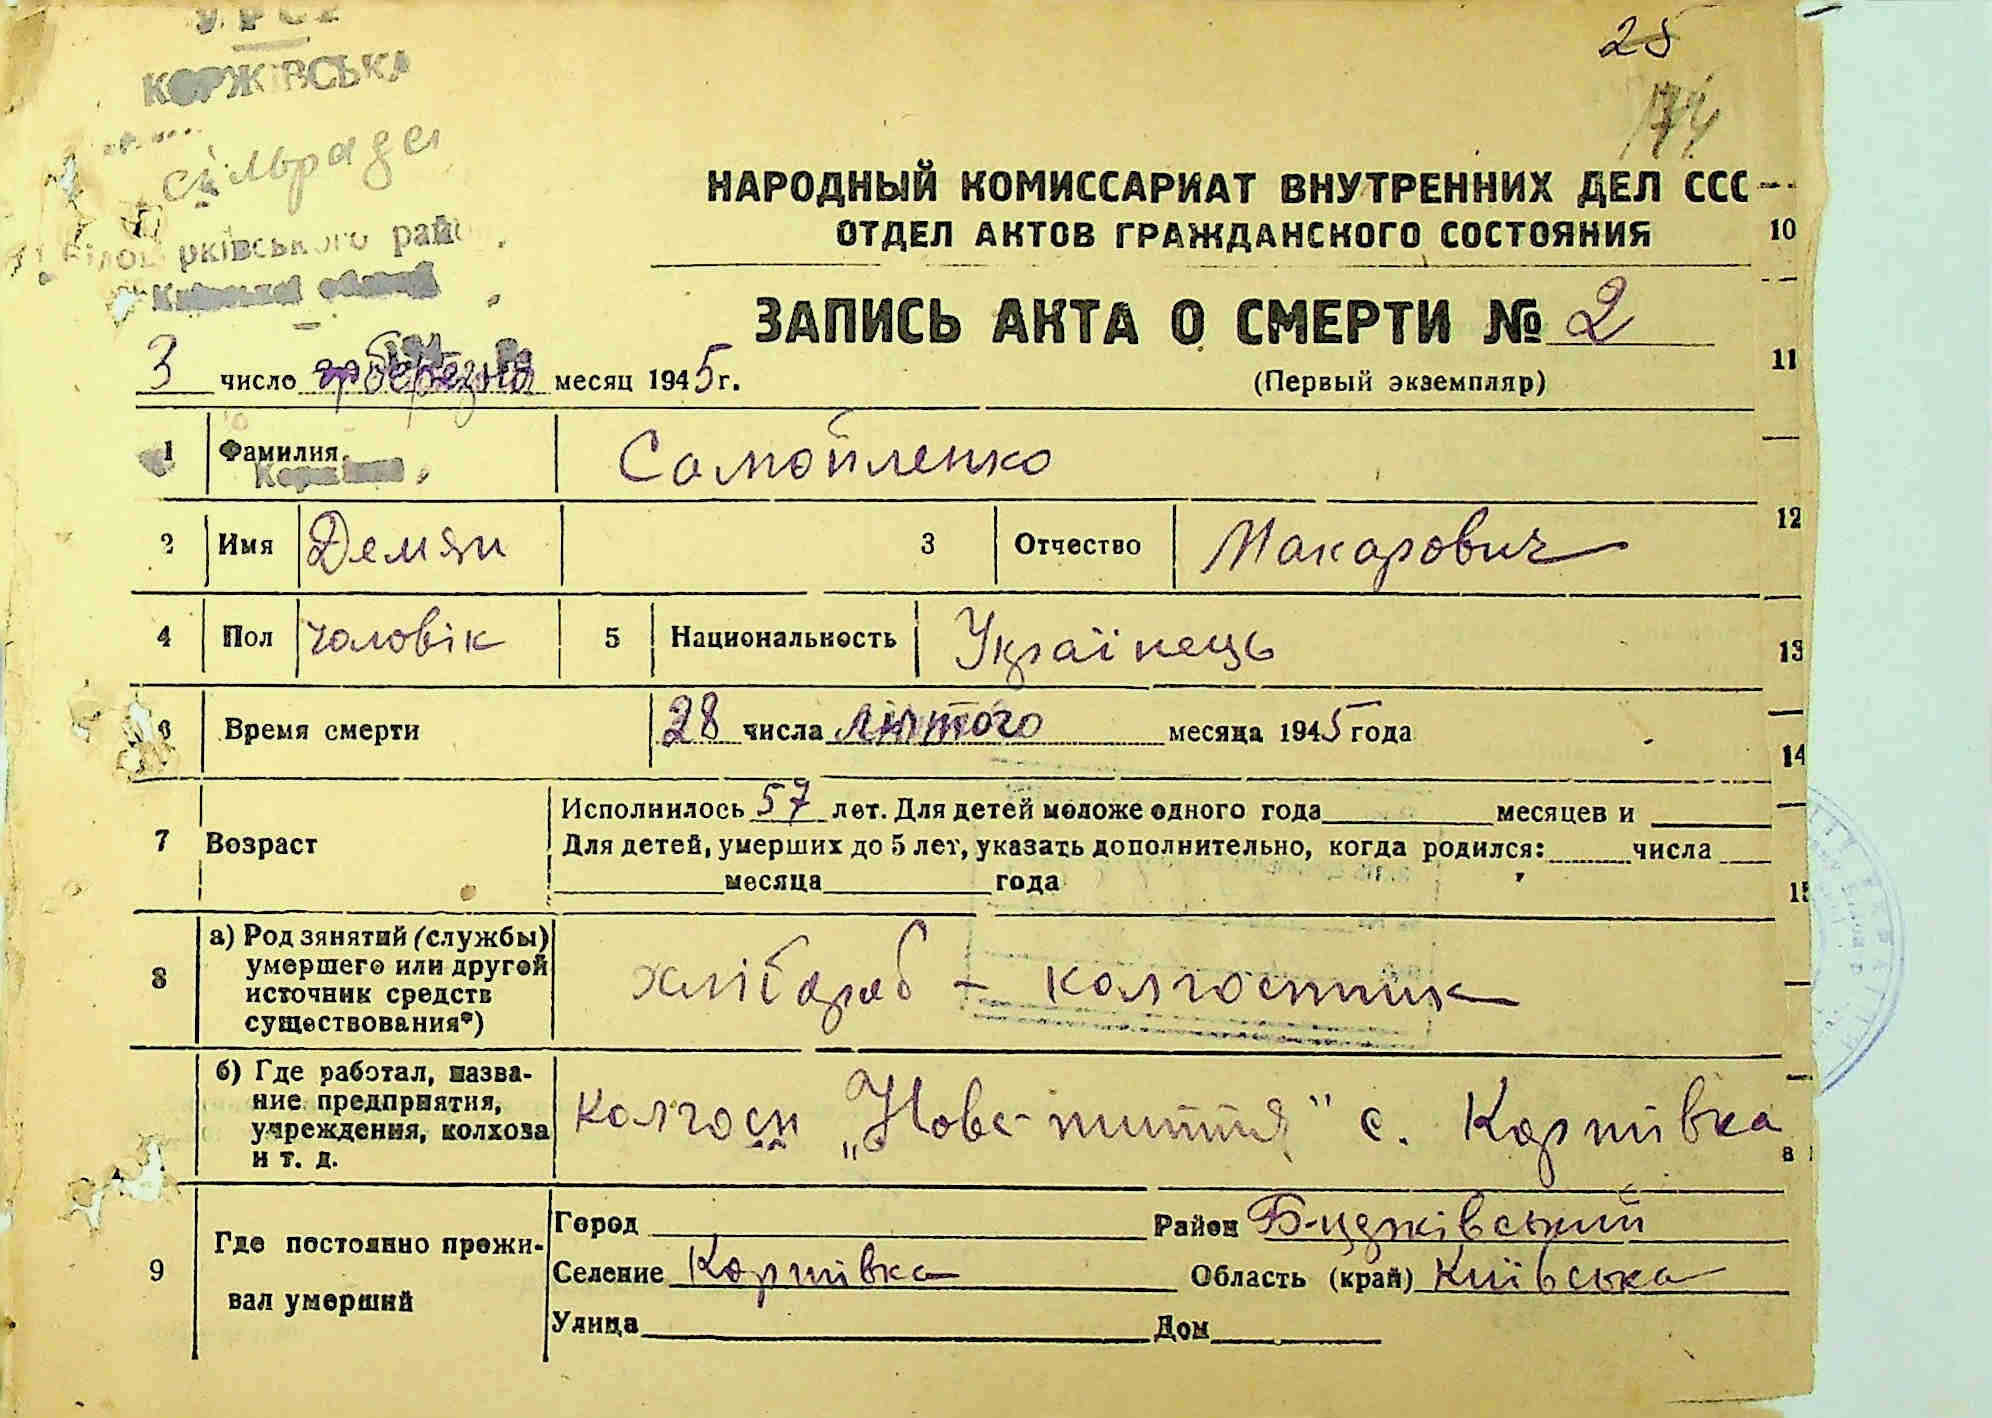 УРСР
КОРЖІВСЬКА
сільрада
Білоцерківського рай
Київської області
25
174
НАРОДНЫЙ КОМИССАРИАТ ВНУТРЕННИХ ДЕЛ ССС
ОТДЕЛ АКТОВ ГРАЖДАНСКОГО СОСТОЯНИЯ
ЗАПИСЬ АКТА О СМЕРТИ № 2
3 число березня месяц 1945 г.
(Первый экземпляр)
1 Фамилия Самойленко
2 Имя Демян 3 Отчество Макарович
4 Пол чоловік 5 Национальность Українець
6 Время смерти 28 числа лютого месяца 1945 года
7 Возраст Исполнилось 57 лет. Для детей моложе одного года месяцев и
Для детей, умерших до 5 лет, указать дополнительно, когда родился: числа
месяца года
8 а) Род занятий (службы) умершего или другой источник средств существования*) хлібороб - колгостник
б) Где работал, название предприятия, учреждения, колхоза и т. д. колгосп "Нове-життя" с. Коржівка
9 Где постоянно проживал умерший
Город Район Б-церківський
Селение Коржівка Область (край) Київська
Улица Дом
10
11
12
13
14
15